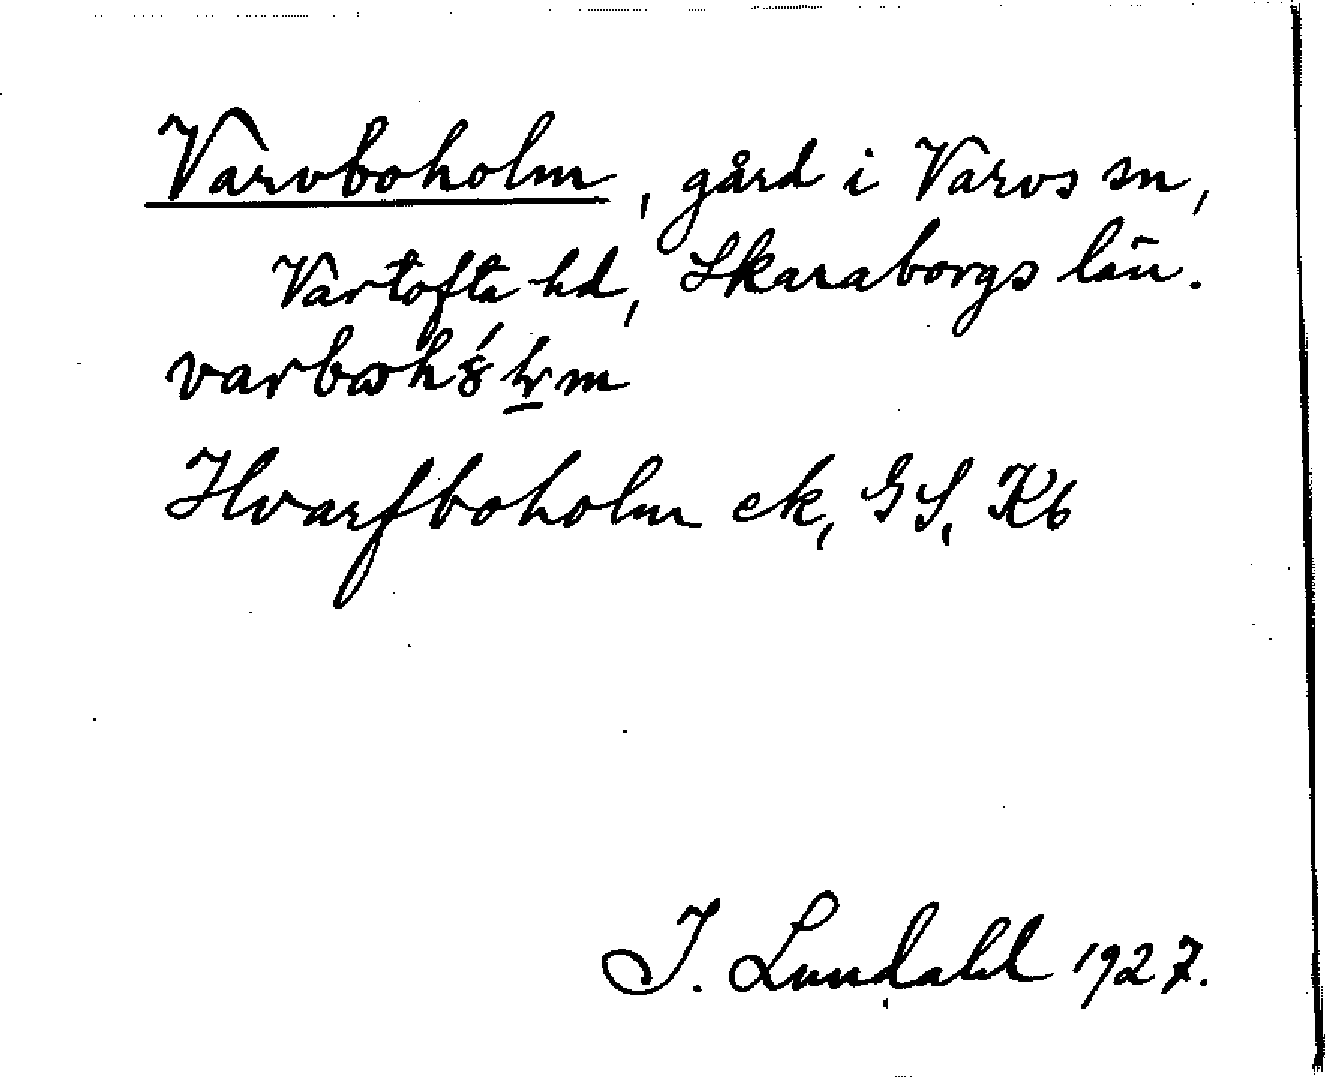 Varvboholm, gård i Varvs sn,
Vartofta hd, Skaraborgs län.
Hvarfboholm ek, GS, Kb
I. Lundahl 1927.